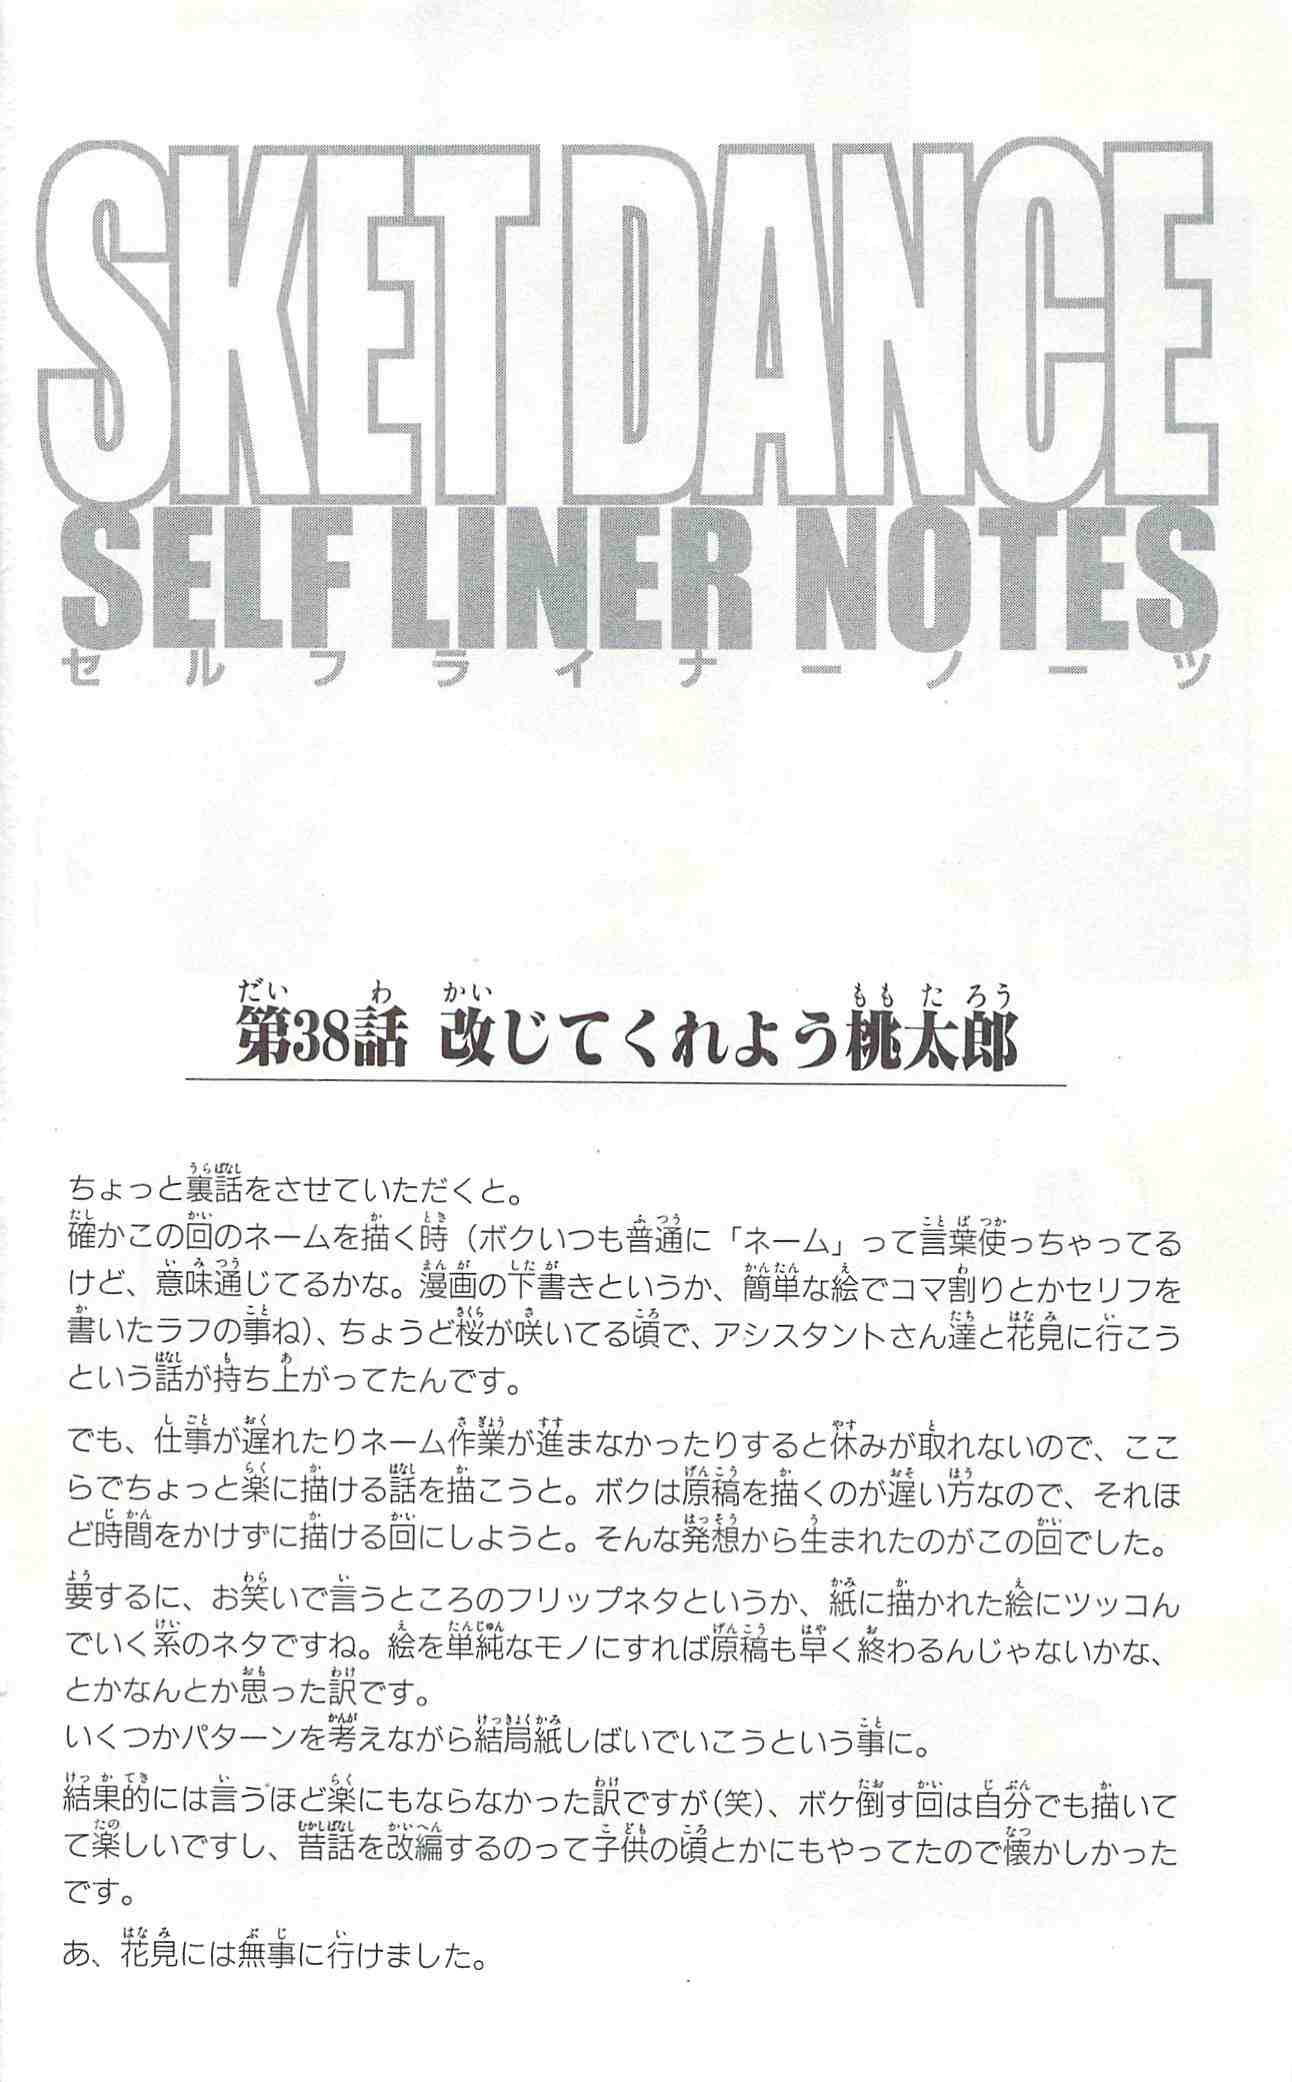 SKET DANCE
SELF LINER NOTES
セルフライナーノーツ
第38話 改じてくれよう桃太郎
ちょっと裏話をさせていただくと。
確かこの回のネームを描く時（ボクいつも普通に「ネーム」って言葉使っちゃってる
けど、意味通じてるかな。漫画の下書きというか、簡単な絵でコマ割りとかセリフを
書いたラフの事ね）、ちょうど桜が咲いてる頃で、アシスタントさん達と花見に行こう
という話が持ち上がってたんです。
でも、仕事が遅れたりネーム作業が進まなかったりすると休みが取れないので、ここ
らでちょっと楽に描ける話を描こうと。ボクは原稿を描くのが遅い方なので、それほ
ど時間をかけずに描ける回にしようと。そんな発想から生まれたのがこの回でした。
要するに、お笑いで言うところのフリップネタというか、紙に描かれた絵にツッコん
でいく系のネタですね。絵を単純なモノにすれば原稿も早く終わるんじゃないかな、
とかなんとか思った訳です。
いくつかパターンを考えながら結局紙しばいでいこうという事に。
結果的には言うほど楽にもならなかった訳ですが（笑）、ボケ倒す回は自分でも描いて
て楽しいですし、昔話を改編するのって子供の頃とかにもやってたので懐かしかった
です。
あ、花見には無事に行けました。